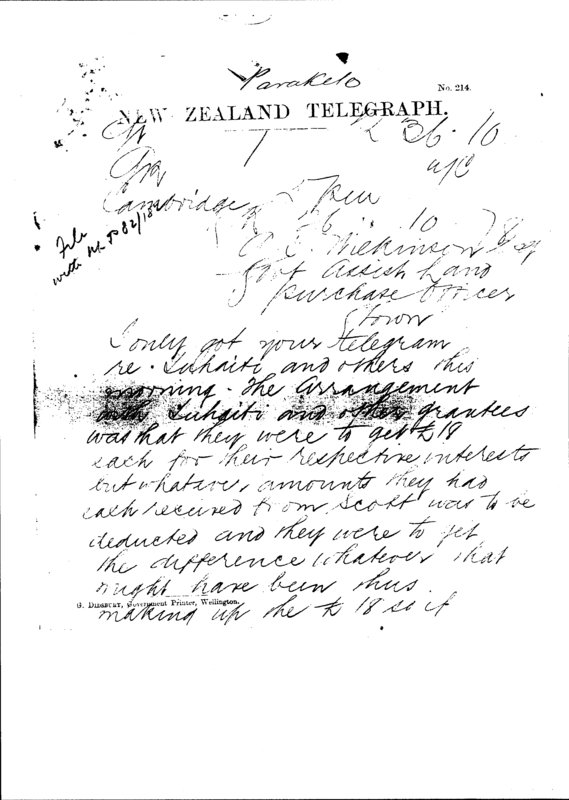 Parakelo
No. 214.
NEW ZEALAND TELEGRAPH.
36. 10
Cambridge
File
with 82/18
10 78
Wilkinson Esq
Govt Assist Land
purchase Officer
Gtown
I only got your telegram
re. Tuhaiti and others this
morning. The arrangement
with Tuhaiti and other grantees
was that they were to get £18
each for their respective interests
but whatever amounts they had
each received from Scott was to be
deducted and they were to get
the difference whatever that
might have been thus
G. DIDSBURY, Government Printer, Wellington.
making up the £18 so if